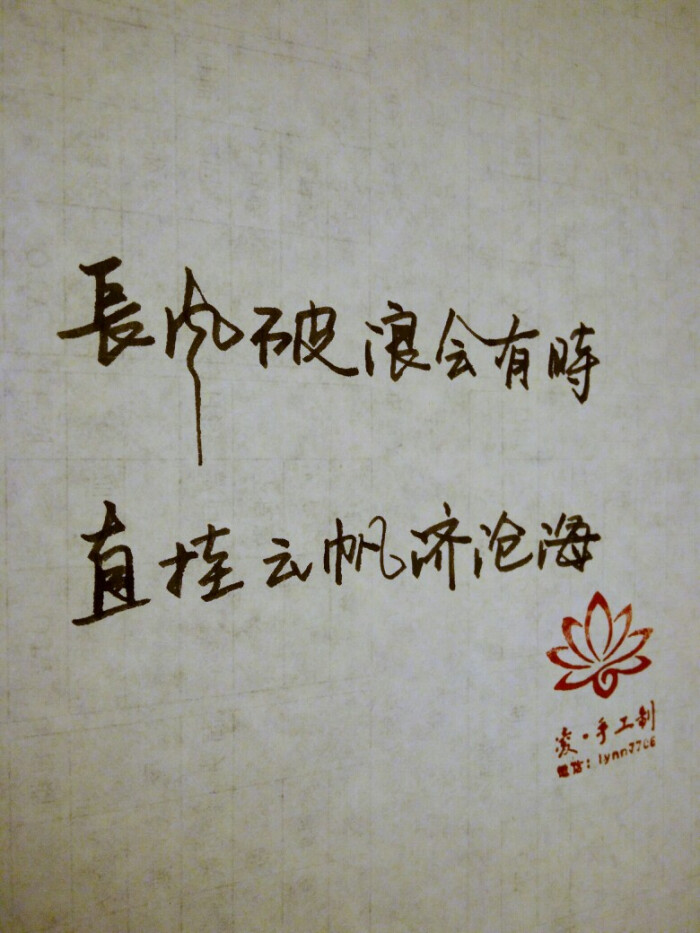 長风破浪会有時
直挂云帆济沧海
凌·手工制
微信:lynn7766